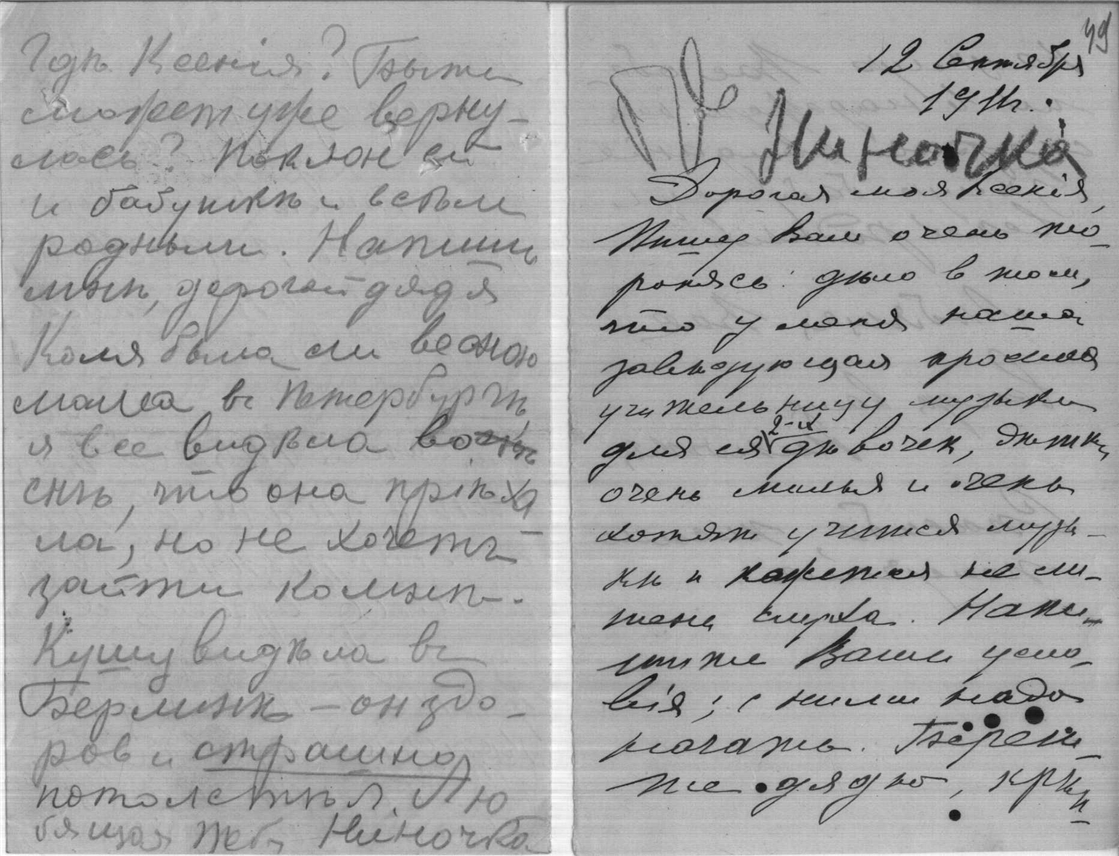 Гдѣ Ксенія? Быть
можетъ уже верну-
лась? Поклон ей
и бабушкѣ и всѣм
родным. Напиши
мнѣ, дорогой дядя
Коля была ли весною
мама въ Петербургѣ
я все видѣла во
снѣ, что она пріѣха
ла, но не хочетъ
зайти ко мнѣ.
Кушу видѣла въ
Берлинѣ – он здо-
ров и страшно
потолстѣл. Лю
бящая тебя Ниночка
49
12 Сентября
191 г.
Ниночка
Дорогая моя Ксенія,
Пишу Вам очень то-
ропясь: дѣло в том,
что у меня наша
завѣдующая просила
учительницу музыки
для ея 2-х дѣвочек, дѣтки
очень милыя и очень
хотят учится музы-
кѣ и кажется не ли-
шены слуха. Напи-
шите Ваши усло-
вія; с ними надо
начать. Береги-
те дядю, крѣп